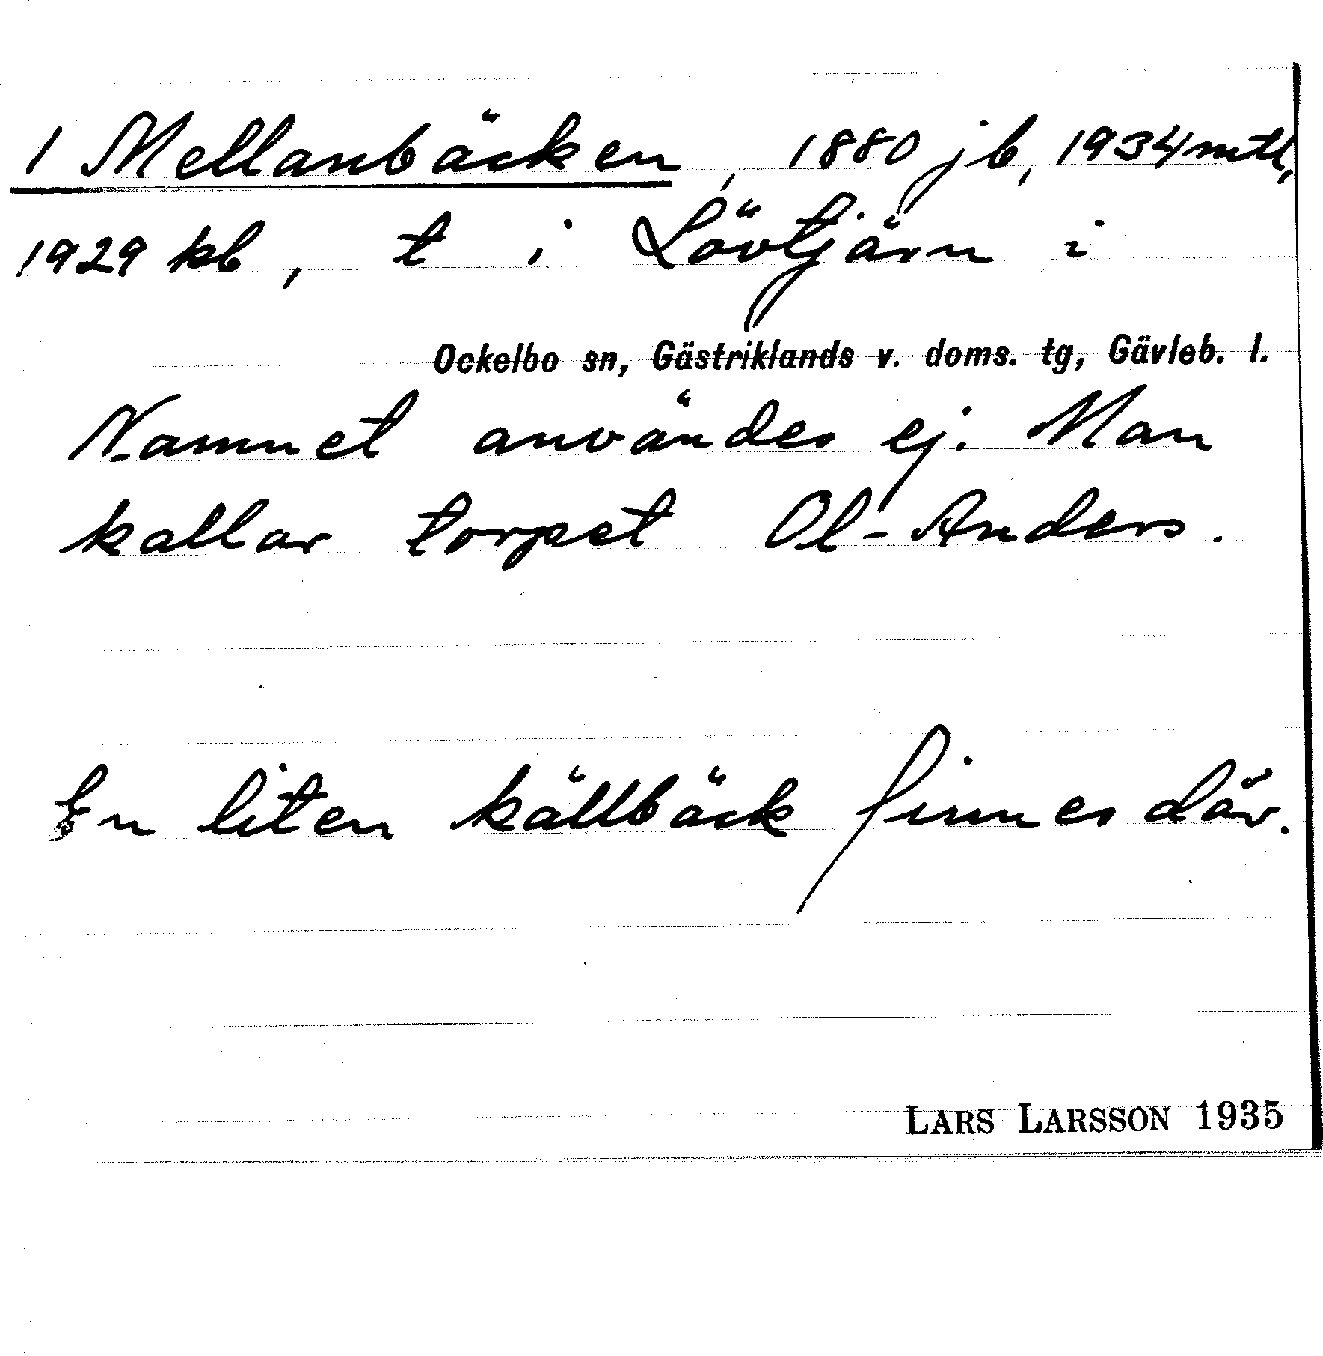 1 Mellanbäcken, 1880 jb, 1934 mtl,
1929 kb, t i Lövtjärn i
Ockelbo sn, Gästriklands v. doms. tg, Gävleb. l.
Namnet användes ej. Man
kallar torpet Ol-Anders.
En liten källbäck finnes där.
LARS LARSSON 1935